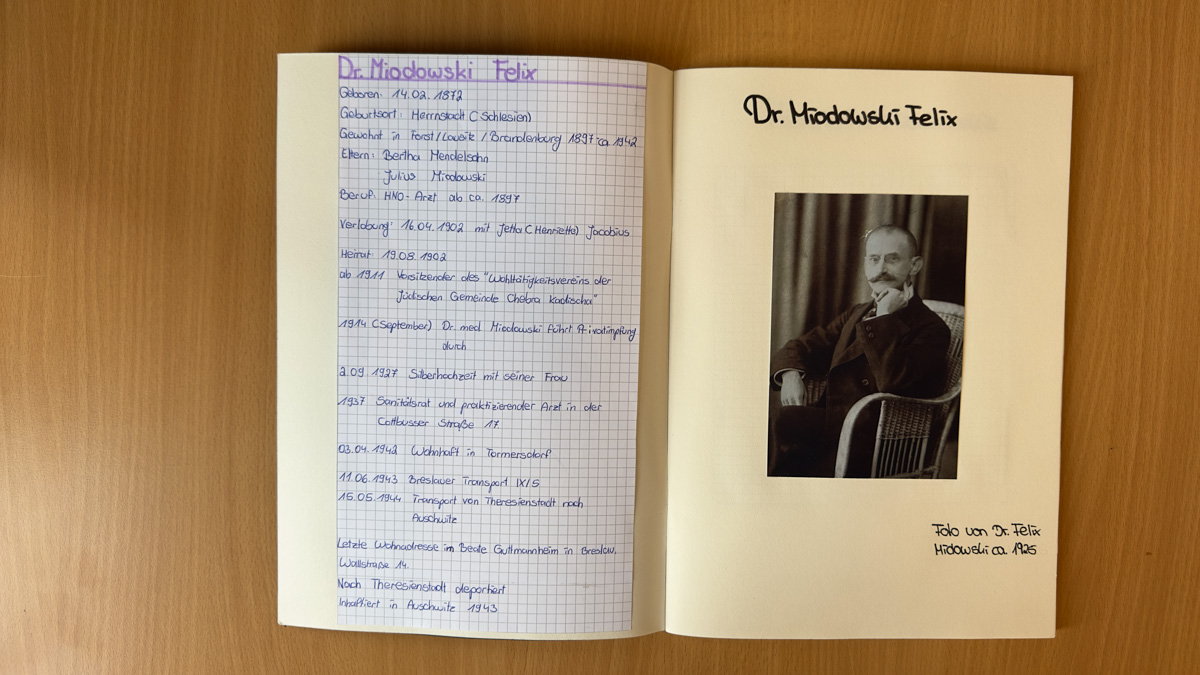 Dr. Miodowski Felix
Geboren: 14.02.1872
Geburtsort: Herrnstadt (Schlesien)
Gewohnt in Forst/Lausitz/Brandenburg 1897 ca. 1942
Eltern: Bertha Mendelsohn
Julius Miodowski
Beruf: HNO-Arzt ab ca. 1897
Verlobung: 16.04.1902 mit Jetta (Henriette) Jacobius
Heirat: 19.08.1902
ab 1911 Vorsitzender des "Wohltätigkeitsvereins der
Jüdischen Gemeinde Chebra Kadischa"
1914 (September) Dr. med Miodowski führt Privatimpfung
durch
2.09.1927 Silberhochzeit mit seiner Frau
1937 Sanitätsrat und praktizierender Arzt in der
Cottbusser Straße 17
03.04.1942 Wohnhaft in Tormersdorf
11.06.1943 Breslauer Transport IX/5
15.05.1944 Transport von Theresienstadt nach
Auschwitz
Letzte Wohnadresse im Beate Guttmannheim in Breslau,
Wallstraße 14.
Nach Theresienstadt deportiert
Inhaftiert in Auschwitz 1943
Dr. Miodowski Felix
Foto von Dr. Felix
Midowski ca. 1925